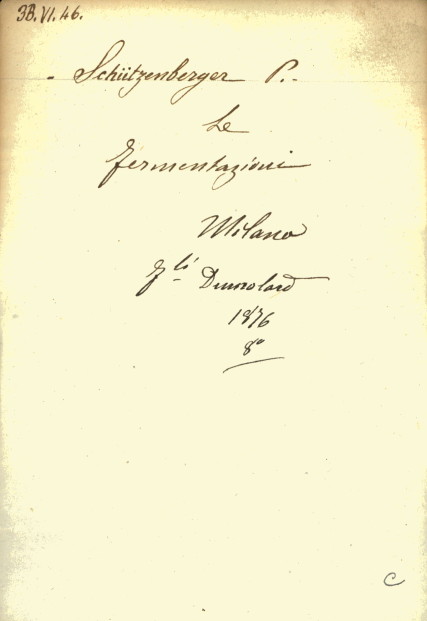 3B.VI.46.
Schützenberger P.
Le
fermentazioni
Milano
F.lli Dumolard
1876
8°
C